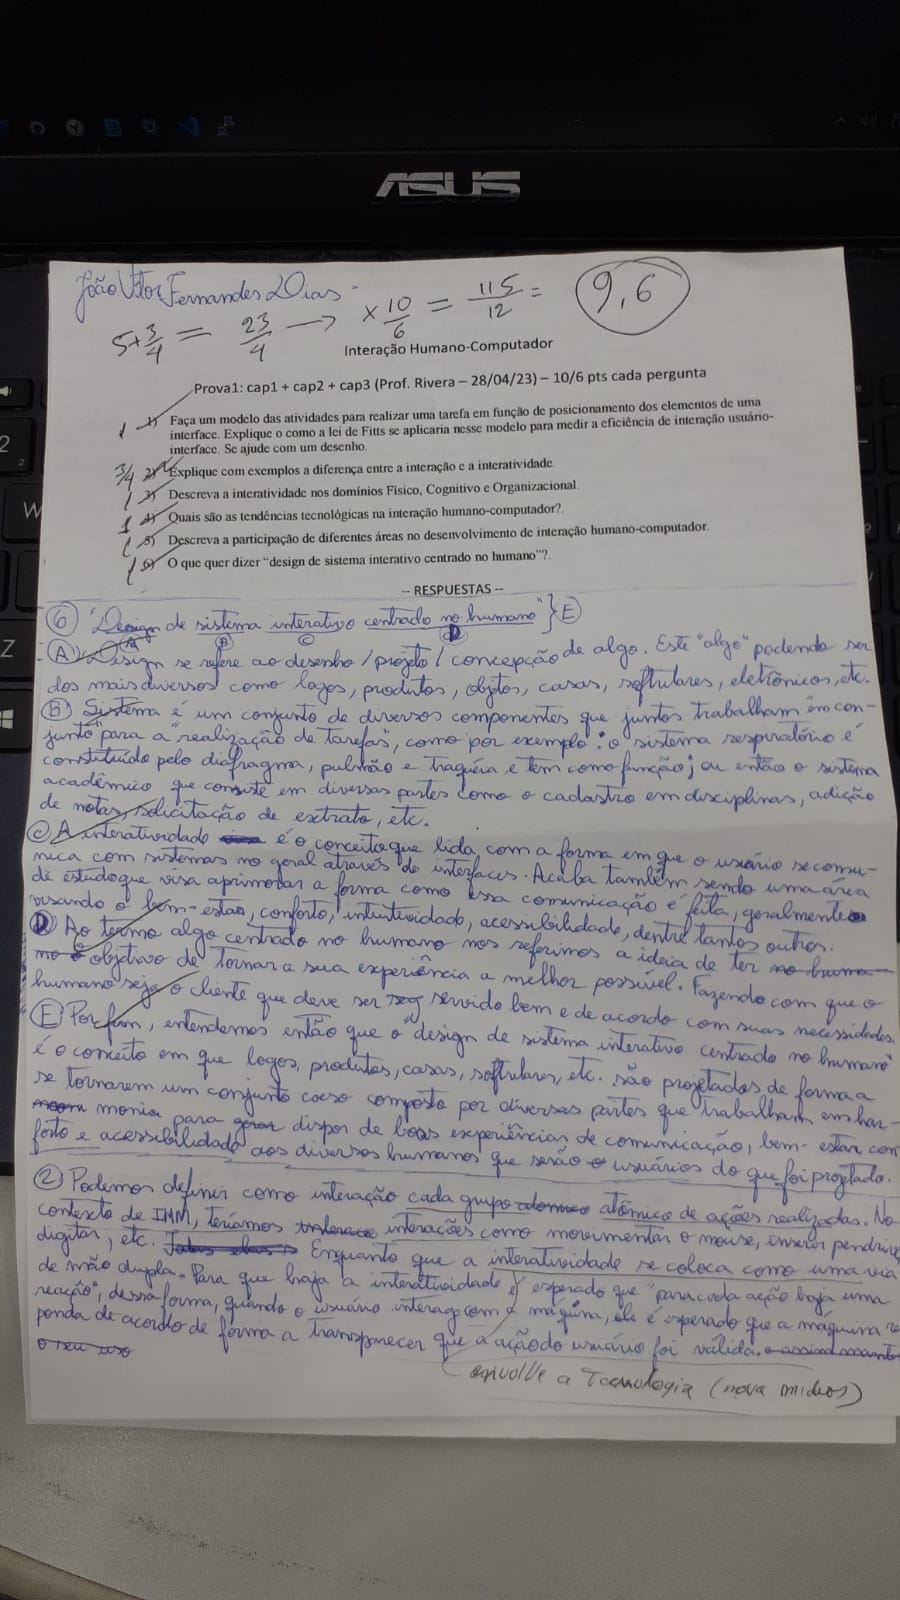 ASUS
João Vitor Fernandes Dias
5+3/4 = 23/4 → x 10/6 = 115/12 = 9,6
Interação Humano-Computador
Prova1: cap1 + cap2 + cap3 (Prof. Rivera – 28/04/23) – 10/6 pts cada pergunta
1 1) Faça um modelo das atividades para realizar uma tarefa em função de posicionamento dos elementos de uma
interface. Explique o como a lei de Fitts se aplicaria nesse modelo para medir a eficiência de interação usuário-
interface. Se ajude com um desenho.
3/4 2) Explique com exemplos a diferença entre a interação e a interatividade.
1 3) Descreva a interatividade nos domínios Físico, Cognitivo e Organizacional.
1 4) Quais são as tendências tecnológicas na interação humano-computador?.
1 5) Descreva a participação de diferentes áreas no desenvolvimento de interação humano-computador.
1 6) O que quer dizer “design de sistema interativo centrado no humano”?.
-- RESPUESTAS --
⑥ "Design de sistema interativo centrado no humano" } Ⓔ
Ⓐ Ⓑ Ⓒ Ⓓ
Ⓐ Design se refere ao desenho/projeto/concepção de algo. Este "algo" podendo ser
dos mais diversos como logos, produtos, objetos, casas, softwares, eletrônicos, etc.
Ⓑ Sistema é um conjunto de diversos componentes que juntos trabalham em con-
junto para a "realização de tarefas", como por exemplo: o sistema respiratório é
constituído pelo diafragma, pulmão e traquéia e tem como função; ou então o sistema
acadêmico que consiste em diversas partes como o cadastro em disciplinas, adição
de notas, solicitação de extrato, etc.
Ⓒ A interatividade é o conceito que lida com a forma em que o usuário se comu-
nica com sistemas no geral através de interfaces. Acaba também sendo uma área
de estudo que visa aprimorar a forma como essa comunicação é feita, geralmente
visando o bem-estar, conforto, intuitividade, acessibilidade, dentre tantos outros.
Ⓓ Ao termo algo centrado no humano nos referimos a ideia de ter
o objetivo de tornar a sua experiência a melhor possível. Fazendo com que o
humano seja o cliente que deve ser servido bem e de acordo com suas necessidades.
Ⓔ Por fim, entendemos então que o "design de sistema interativo centrado no humano"
é o conceito em que logos, produtos, casas, softwares, etc. são projetados de forma a
se tornarem um conjunto coeso composto por diversas partes que trabalham em har-
monia para dispor de boas experiências de comunicação, bem-estar, con
forto e acessibilidade aos diversos humanos que serão usuários do que foi projetado.
② Podemos definir como interação cada grupo atômico de ações realizadas. No
contexto de IMM, teríamos interações como movimentar o mouse, inserir pendrive,
digitar, etc. Enquanto que a interatividade se coloca como uma via
de mão dupla. Para que haja a interatividade é esperado que "para cada ação haja uma
reação", dessa forma, quando o usuário interage com a máquina, ele é esperado que a máquina re
ponda de acordo de forma a transparecer que a ação do usuário foi válida.
envolve a Tecnologia (nova mideos)